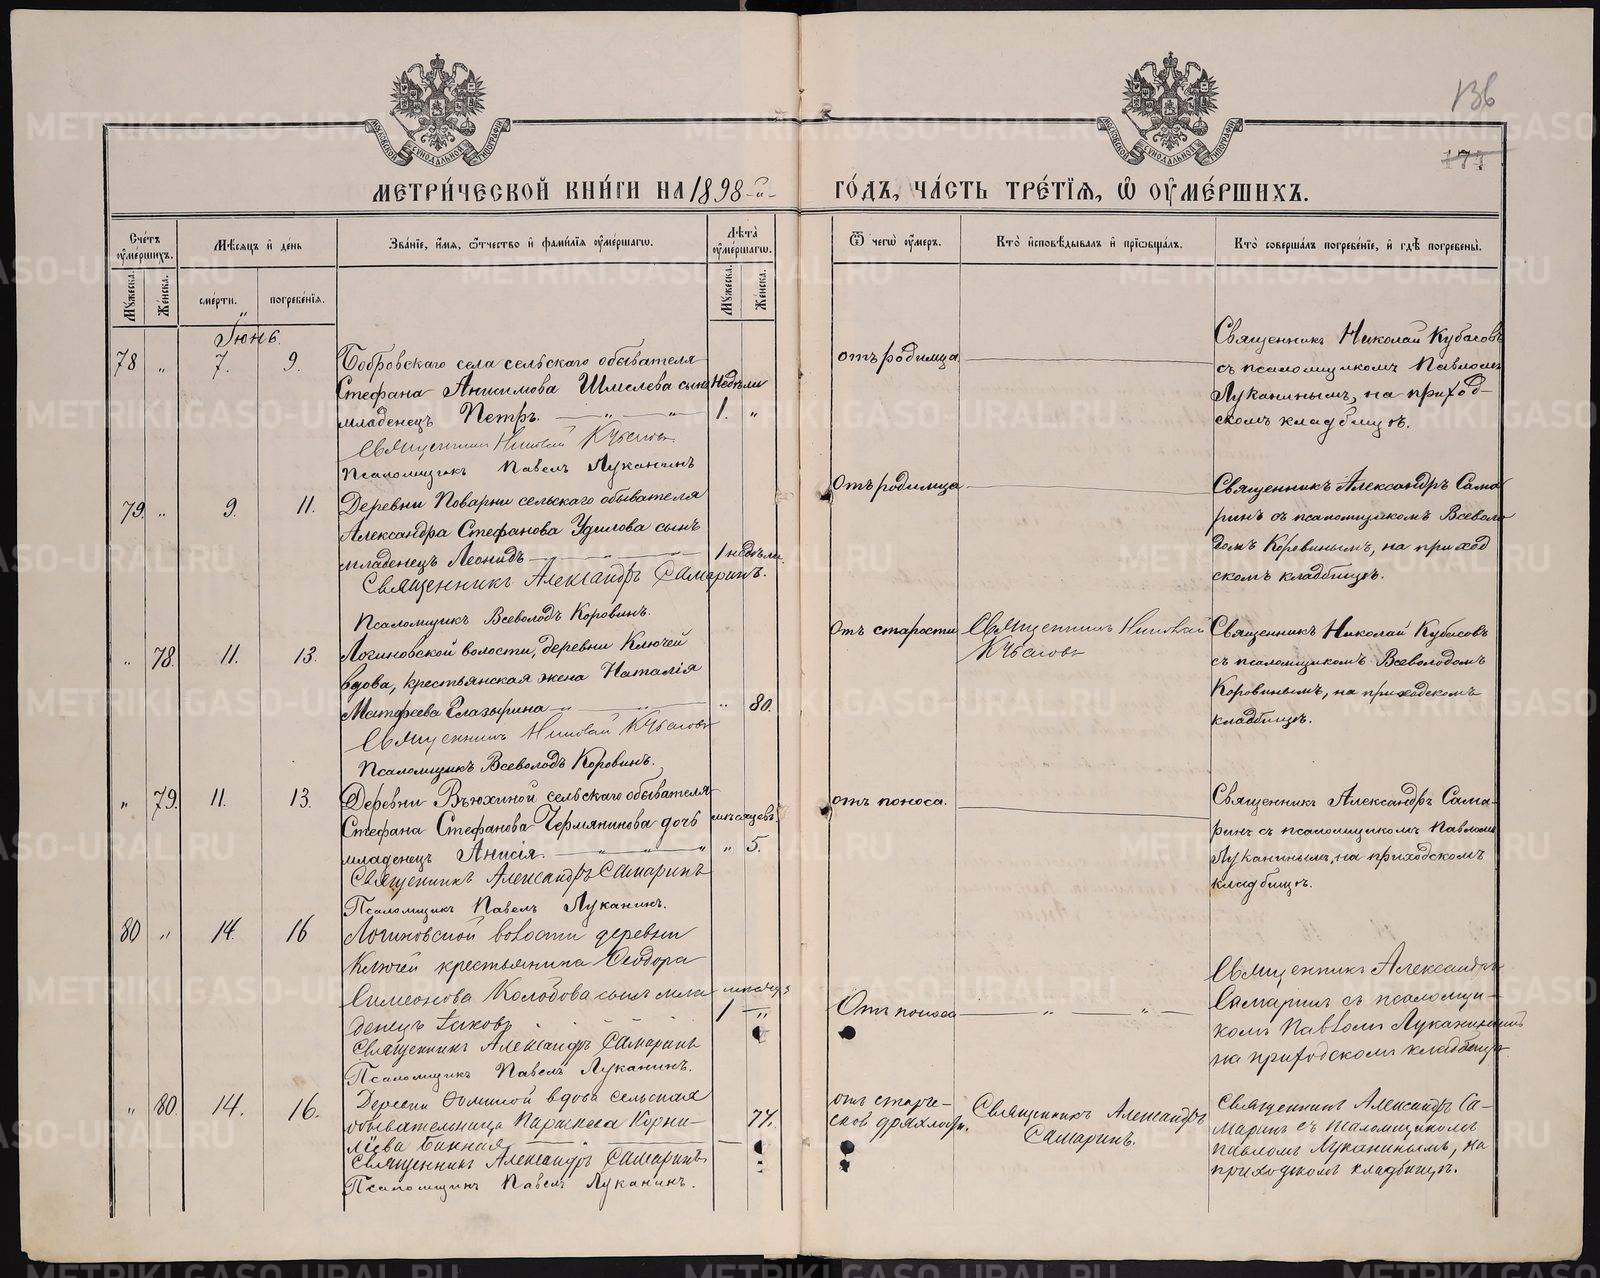 136
171
МЕТРИ́ЧЕСКОЙ КНИ́ГИ НА 1898-й
ГО́ДЪ, ЧА́СТЬ ТРЕ́ТІЯ, Ѡ ОУМЕ́РШИХЪ.
МОСКОВСКОЙ СУНОДАЛЬНОЙ ТИПОГРАФІИ
МОСКОВСКОЙ СУНОДАЛЬНОЙ ТИПОГРАФІИ
Сче́тъ оумершихъ.
Мѣсяцъ и де́нь
Зва́ніе, и́мя, ѻтчество и фами́лія оуме́ршагѡ.
Лѣта̀ оуме́ршагѡ.
Ѿ чегѡ̀ оу́меръ.
Кто̀ исповѣ́дывалъ и пріѻбща́лъ.
Кто̀ соверша́лъ погребе́ніе, и гдѣ̀ погребены̀.
Мꙋ́жеска.
Же́нска.
сме́рти.
погребе́нія.
Мꙋ́жеска.
Же́нска.
Іюнь.
78 " 7. 9.
Бобровскаго села сельскаго обывателя
Стефана Анисимова Шмелева сынъ Недѣли
младенецъ Петръ. — " — " 1. "
Священникъ Николай Кубасовъ
Псаломщикъ Павелъ Луканинъ
отъ родимца
Священникъ Николай Кубасовъ
съ псаломщикомъ Павломъ
Луканинымъ, на приход-
скомъ кладбищѣ.
79. " 9. 11.
Деревни Поварни сельскаго обывателя
Александра Стефанова Удилова сынъ
младенецъ Леонидъ — " — " 1 недѣли
Священникъ Александръ Самаринъ.
Псаломщикъ Всеволодъ Коровинъ.
Отъ родимца
Священникъ Александръ Сама
ринъ съ псаломщикомъ Всеволо
домъ Коровинымъ, на приход
скомъ кладбищѣ.
" 78. 11. 13.
Логиновской волости, деревни Ключей
вдова, крестьянская жена Наталія
Матфеева Глазырина — " — " " 80.
Священникъ Николай Кубасовъ
Псаломщикъ Всеволодъ Коровинъ.
Отъ старости
Священникъ Николай
Кубасовъ
Священникъ Николай Кубасовъ
съ псаломщикомъ Всеволодомъ
Коровинымъ, на приходскомъ
кладбищѣ.
" 79. 11. 13.
Деревни Вьюхиной сельскаго обывателя
Стефана Стефанова Чермянинова дочь мѣсяцевъ
младенецъ Анисія. — " — " — " " 5.
Священникъ Александръ Самаринъ
Псаломщикъ Павелъ Луканинъ.
отъ поноса.
Священникъ Александръ Сама-
ринъ съ псаломщикомъ Павломъ
Луканинымъ, на приходскомъ
кладбищѣ.
80 " 14. 16
Логиновской волости деревни
Ключей крестьянина Ѳеодора
Симеонова Колобова сынъ мла мѣсяцъ
денецъ Іаковъ 1 "
Священникъ Александръ Самаринъ
Псаломщикъ Павелъ Луканинъ.
Отъ поноса — " — " —
Священникъ Александръ
Самаринъ съ псаломщи-
комъ Павломъ Луканинымъ
на приходскомъ кладбищѣ
" 80. 14. 16.
Деревни Ѳоминой вдова сельская
обывательница Параскева Корни- 77.
ліева
Священникъ Александръ Самаринъ
Псаломщикъ Павелъ Луканинъ.
отъ старче-
ской дряхлости.
Священникъ Александръ
Самаринъ.
Священникъ Александръ Са-
маринъ съ псаломщикомъ
Павломъ Луканинымъ, на
приходскомъ кладбищѣ.
METRIKI.GASO-URAL.RU